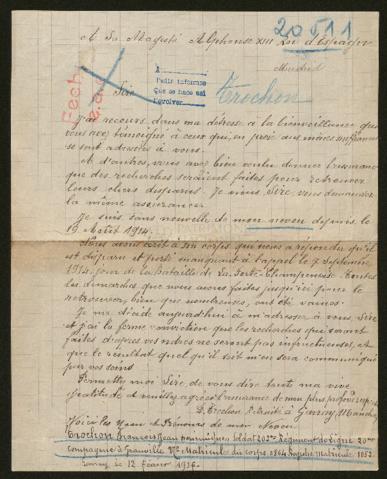 20511
A Sa Majesté Alphonse XIII Roi d'Espagne
Madrid
A
Pedir informes
Que se hace así
Devolver
Fech
Sire
Trochon
J'ai recours dans ma détresse à la bienveillance que
vous avez témoignée à ceux qui, en proie aux mêmes
se sont adressés à vous.
A d'autres, vous avez bien voulu donner l'assurance
que des recherches seraient faites pour retrouver
leurs chers disparus. Je viens, Sire, vous demander
la même assurance.
Je suis sans nouvelle de mon neveu depuis le
19 Août 1914.
Nous avons écrit à son corps qui nous a répondu qu'il
est disparu et porté manquant à l'appel le 7 Septembre
1914, jour de la bataille de La Fère-Champenoise. Toutes
les démarches que nous avons faites jusqu'ici pour le
retrouver, bien que nombreuses, ont été vaines.
Je me décide aujourd'hui à m'adresser à vous Sire
et j'ai la ferme conviction que les recherches qui seront
faites d'après vos ordres ne seront pas infructueuses, et
que le résultat quel qu'il soit m'en sera communiqué
par vos soins.
Permettez moi Sire, de vous dire toute ma vive
gratitude et veuillez agréer l'assurance de mon plus profond
Trochon à (Manche)
Voici les Noms et Prénoms de mon Neveu
Trochon François Jean soldat 202me Régiment de ligne 20me
compagnie à Granville No Matricule du corps 1864 Matricule 1052
le 12 Février 1916